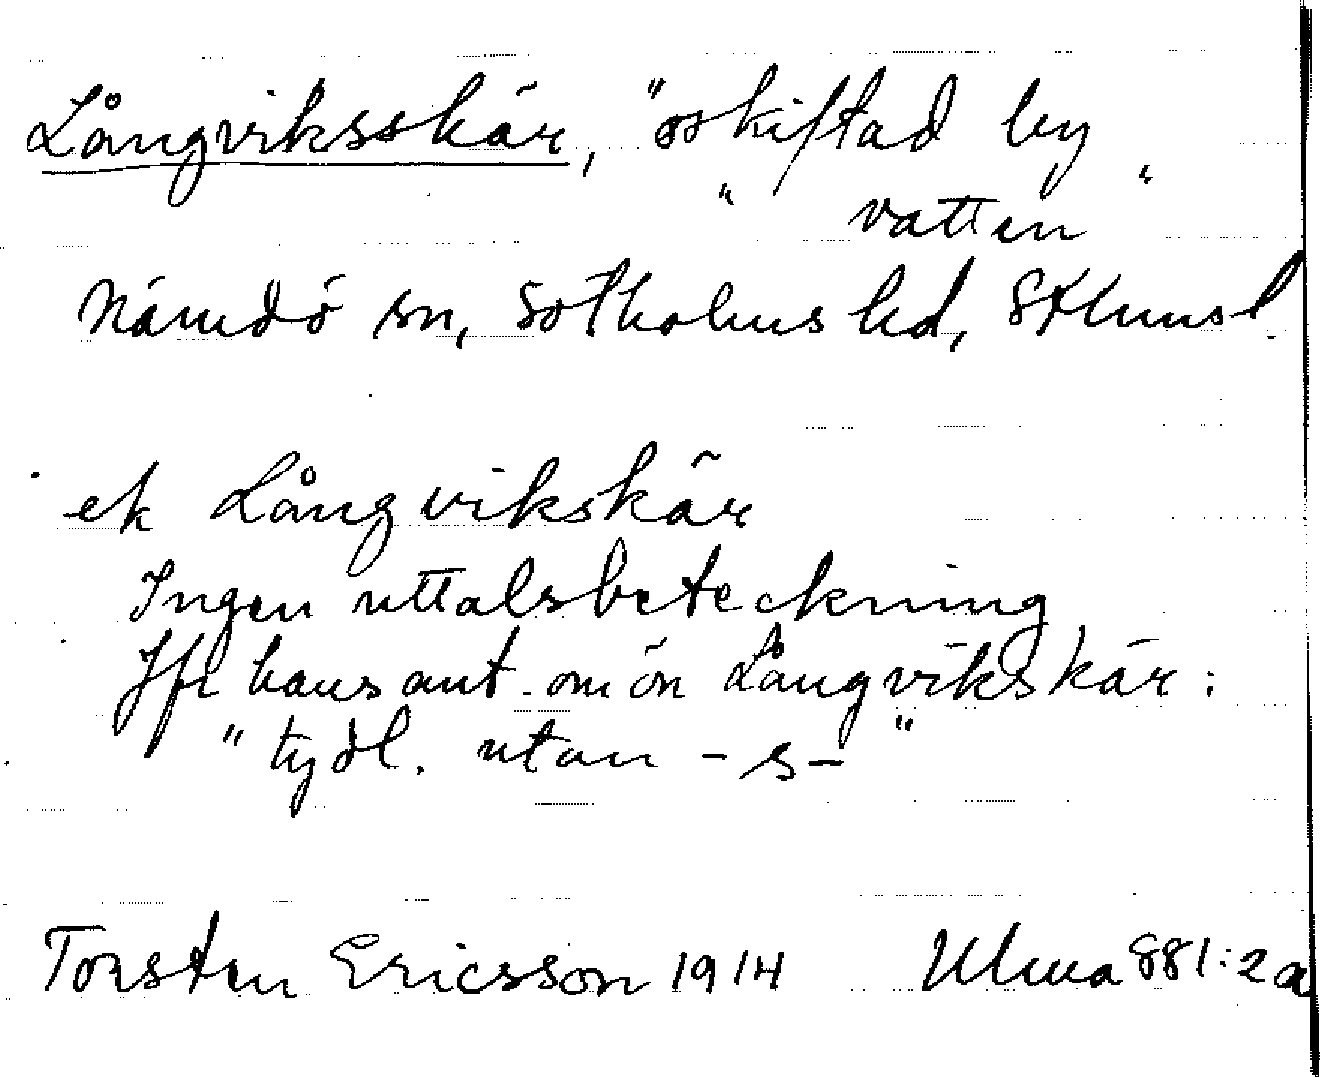 Långviksskär, "oskiftad by
" vatten "
Nämdö sn, Sotholms hd, Sthlmsl.
ek Långvikskär
Ingen uttalsbeteckning
Jfr hans ant. om ön Långvikskär:
"tydl. utan -s-"
Torsten Ericsson 1914 Ulma 881:2a